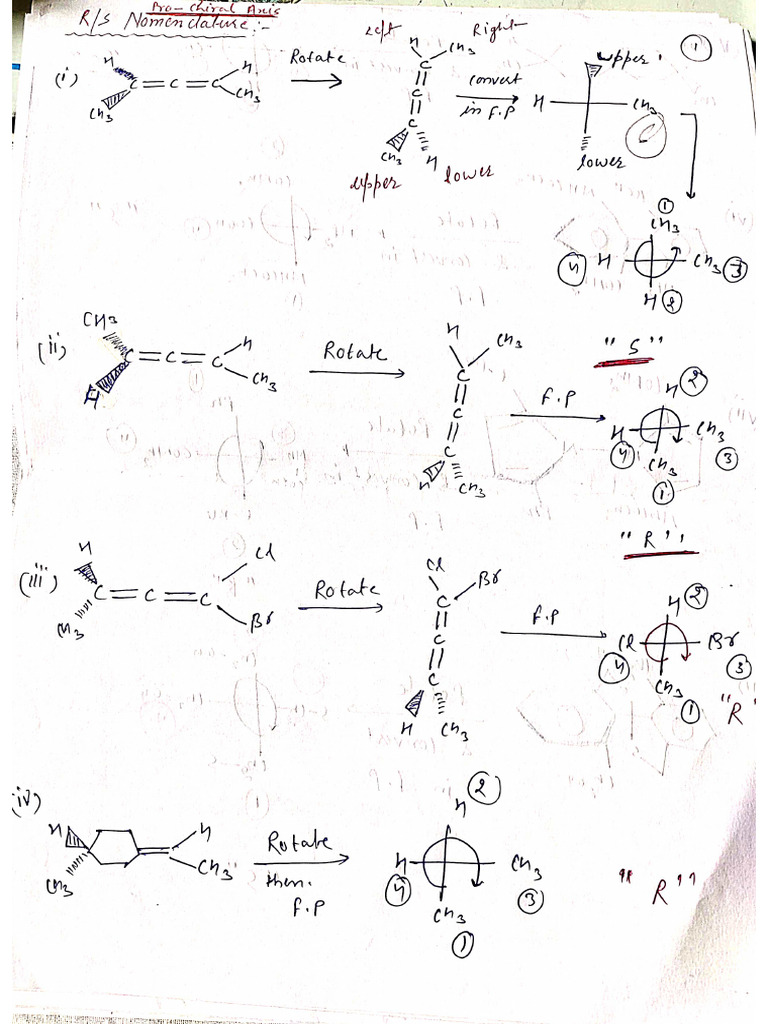 Pro-Chiral Axis
R/S Nomenclature:-
(i) H CH3 C=C=C H CH3
Rotate
Left Right
H CH3 C=C=C CH3 H
upper lower
convert in F.P
upper. 1
H CH3
lower
1 CH3
4 H CH3 3
H 2
"S"
(ii) CH3 H C=C=C H CH3
Rotate
H CH3 C=C=C H CH3
F.P
H 2
H 4 CH3 3
CH3 1
"R"
(iii) H CH3 C=C=C Cl Br
Rotate
Cl Br C=C=C H CH3
F.P
H 2
Cl 4 Br 3
CH3 1
"R"
(iv) H CH3 C H CH3
Rotate then. F.P
2 H
H 4 CH3 3
CH3 1
"R"